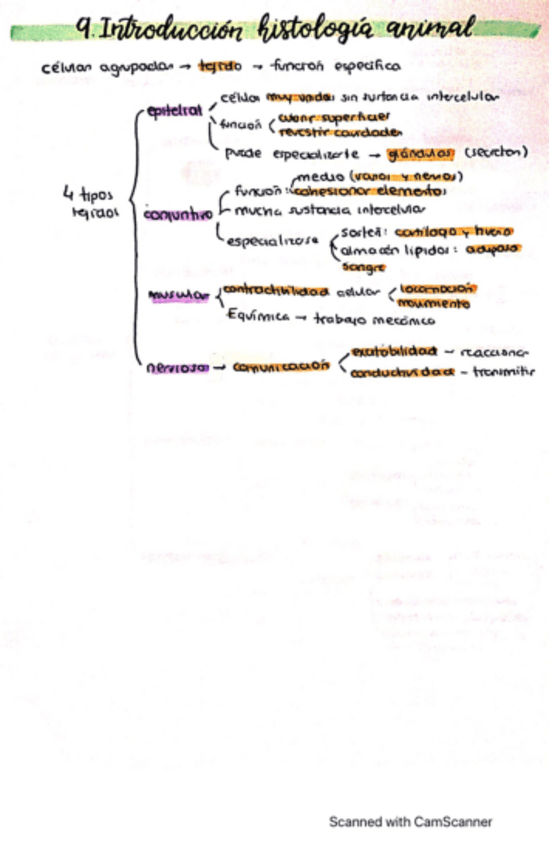 9. Introducción histología animal
células agrupadas → tejido → función específica
4 tipos tejidos
epitelial
células muy unidas sin sustancia intercelular
función
cubrir superficies
revestir cavidades
puede especializarse → glándulas (secretan)
conjuntivo
función:
medio (vasos y nervios)
cohesionar elementos
mucha sustancia intercelular
especializarse
sostén: cartílago y hueso
almacén lípidos: adiposo
sangre
muscular
contractibilidad celular
locomoción
movimiento
Equímica → trabajo mecánico
nervioso → comunicación
excitabilidad → reaccionar
conductividad - transmitir
Scanned with CamScanner